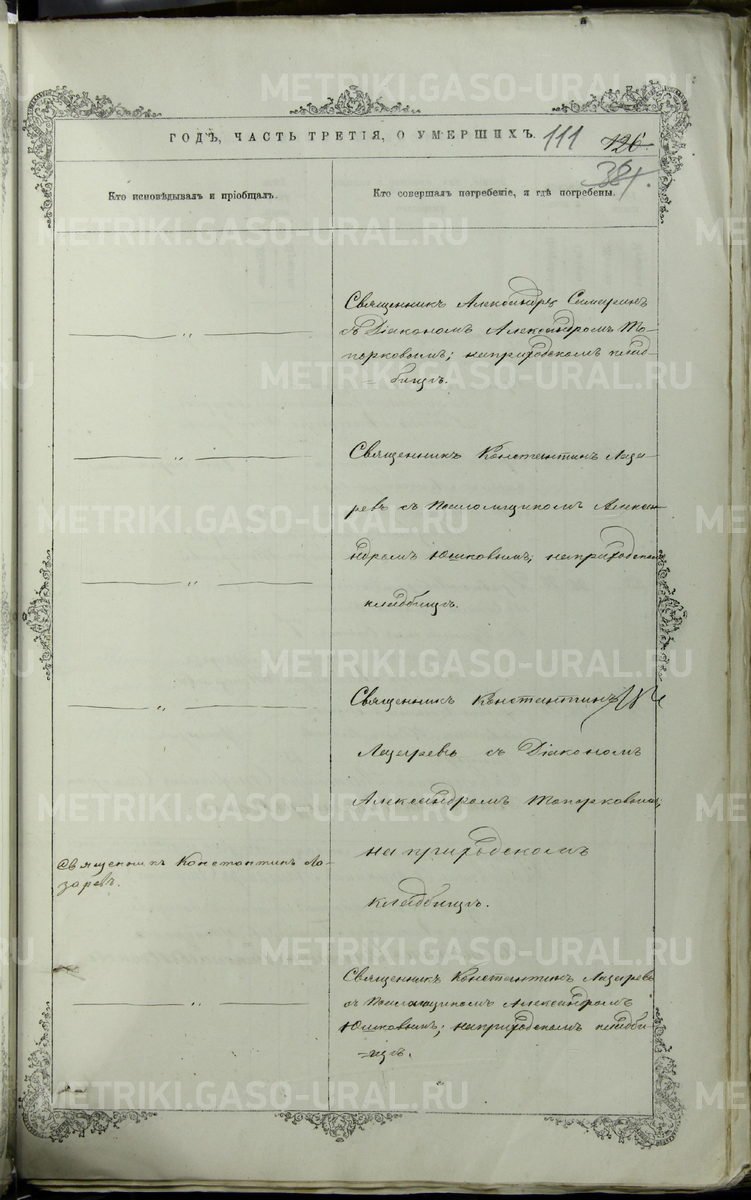 ГОДЪ, ЧАСТЬ ТРЕТІЯ, О УМЕРШИХЪ.
111
126.
381.
Кто исповѣдывалъ и пріобщалъ.
Кто совершалъ погребеніе, и гдѣ погребены.
Священникъ Александръ
съ Діакономъ Александромъ То-
порковымъ; на приходскомъ клад-
бищѣ.
Священникъ Константинъ Лаза-
ревъ съ Псаломщикомъ Алекса-
ндромъ Юшковымъ; на приходском
кладбищѣ.
Священникъ Константинъ
Лазаревъ съ Діакономъ
Александромъ Топорковым;
на приходскомъ
кладбищѣ.
Священникъ Константинъ Ла-
заревъ.
Священникъ Константинъ Лазаревъ
съ Псаломщикомъ Александромъ
Юшковымъ; на приходскомъ кладби-
щѣ.
METRIKI.GASO-URAL.RU